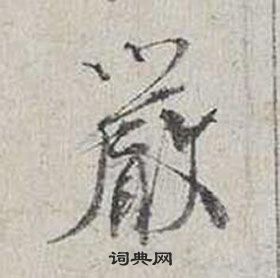 嚴
词典网